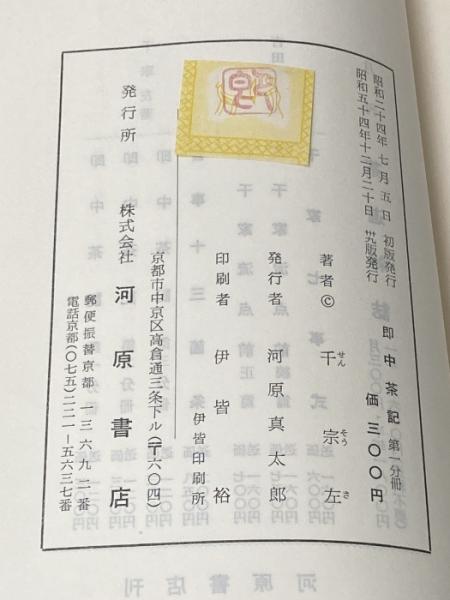 昭和二十四年 七月五日 初版発行
昭和五十四年十二月二十日 卅九版発行
即中茶記 第一分冊
価 三〇〇円
著者© 千宗左
せん そう さ
発行者 河原真太郎
印刷者 伊皆裕
伊皆印刷所
京都市中京区高倉通三条下ル(〒六〇四)
発行所 株式会社 河原書店
郵便振替京都 一三六九二番
電話京都(〇七五)二二一―五六三七番